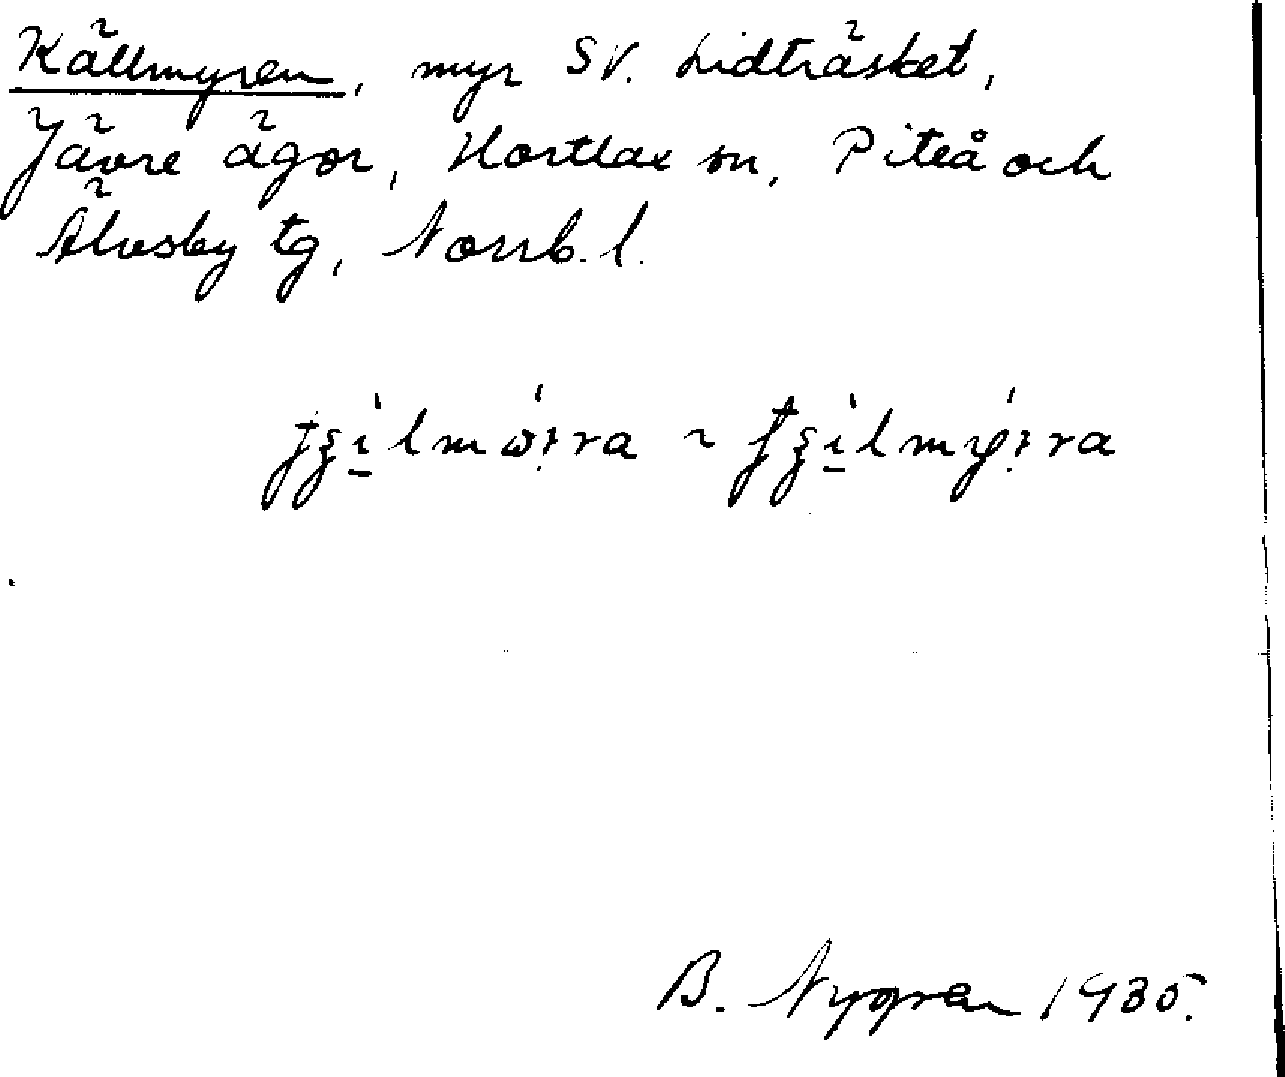 Källmyren, myr SV. Lidträsket,
Jävre ägor, Hortlax sn, Piteå och
Älvsby tg, Norrb. l.
B. Nygren 1935.